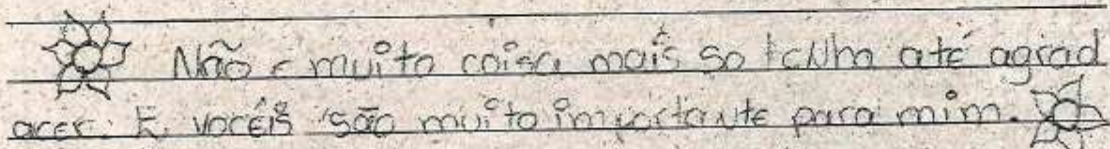 Não e muito coisa mais so tenho até agrad
acer. E vocêis são muito importante para mim.